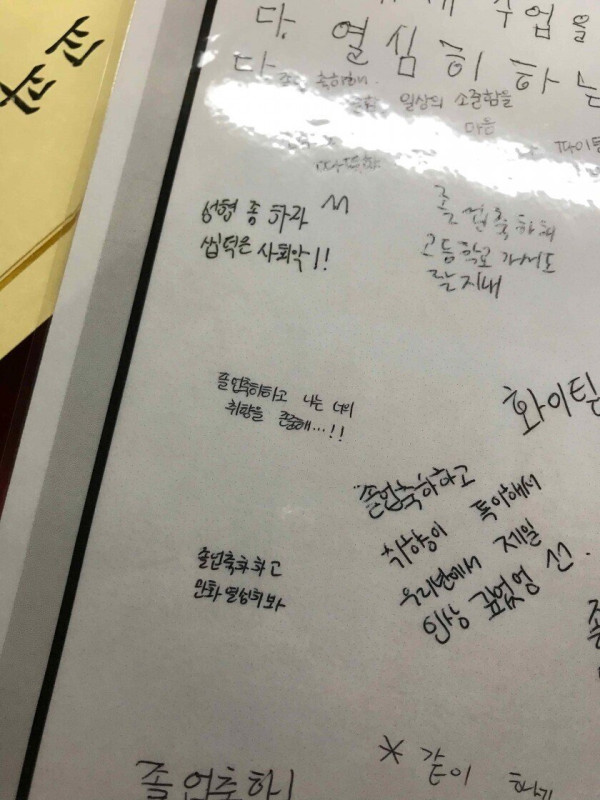 수업을
다. 열심히 하는
다
축하해.
일상의 소중함을
마음
파이팅
따뜻한
성형 좀 하라
씹덕은 사회악!!
졸업축하해
고등학교 가서도
잘지내
졸업축하하고 나는 너의
취향을 존중해...!!
화이팅
졸업축하하고
취향이 특이해서
우리반에서 제일
인상 깊었엉
졸업축하하고
만화 열심히봐
졸
* 같이
졸업축하!